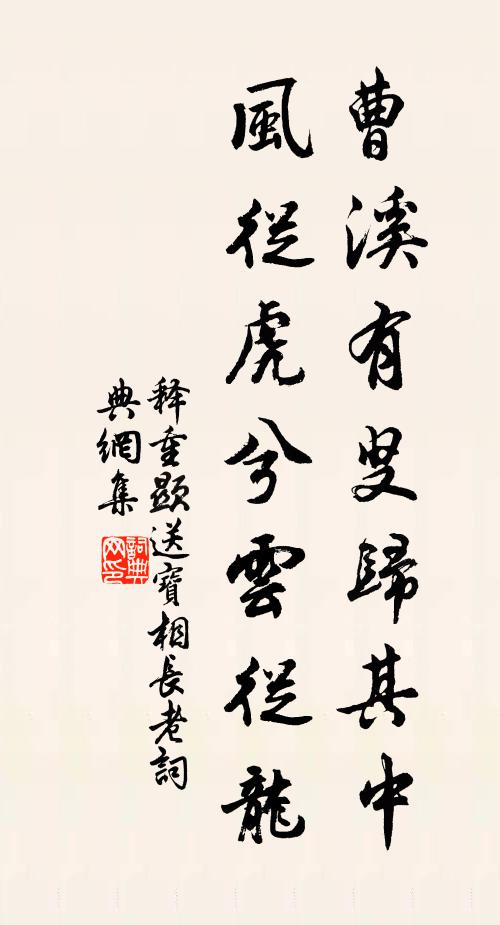 曹溪有叟歸其中
風從虎兮雲從龍
释重顯送寶相長老詞
典網集
詞典网印